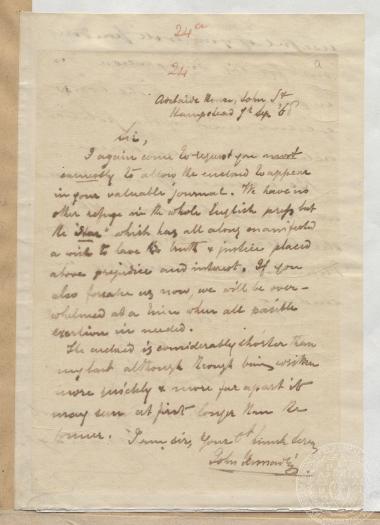 24a
24
a
Adelaide House, John St
Hampstead 7th Sep '6
Sir,
I again come to request you most
earnestly to allow the enclosed to appear
in your valuable journal. We have no
other refuge in the whole English press but
the "Star" which has all along manifested
a wish to have the truth & justice placed
above prejudice and interest. If you
also forsake us now, we will be over-
whelmed at a time when all possible
exertion is needed.
The enclosed is considerably shorter than
my last although through being written
more quickly & more far apart it
may seem at first longer than the
former. I am, Sir, Your
John